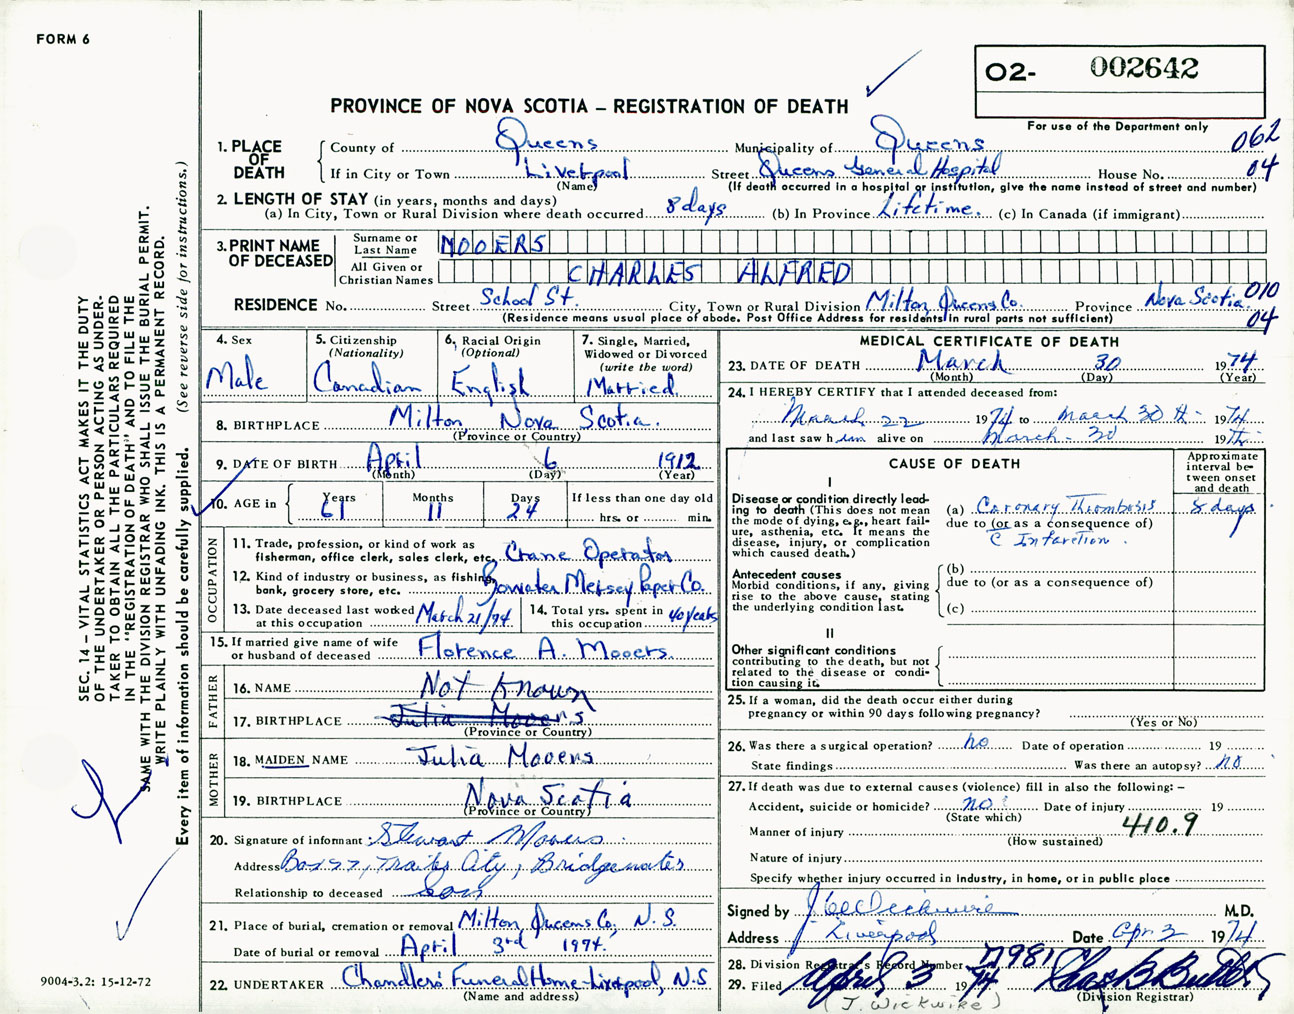 FORM 6
O2- 002642
PROVINCE OF NOVA SCOTIA – REGISTRATION OF DEATH
For use of the Department only
062
04
1. PLACE OF DEATH
County of Queens Municipality of Queens
If in City or Town Liverpool Street Queens General Hospital House No.
(Name) (If death occurred in a hospital or institution, give the name instead of street and number)
2. LENGTH OF STAY (in years, months and days)
(a) In City, Town or Rural Division where death occurred 8 days (b) In Province Lifetime. (c) In Canada (if immigrant)
3. PRINT NAME OF DECEASED
Surname or Last Name MOOERS
All Given or Christian Names CHARLES ALFRED
RESIDENCE No. Street School St. City, Town or Rural Division Milton, Queens Co. Province Nova Scotia 010
(Residence means usual place of abode. Post Office Address for residents in rural parts not sufficient) 04
4. Sex
Male
5. Citizenship
(Nationality)
Canadian
6. Racial Origin
(Optional)
English
7. Single, Married, Widowed or Divorced
(write the word)
Married.
8. BIRTHPLACE Milton, Nova Scotia.
(Province or Country)
9. DATE OF BIRTH April 6 1912
(Month) (Day) (Year)
10. AGE in Years Months Days If less than one day old
61 11 24 hrs. or min.
OCCUPATION
11. Trade, profession, or kind of work as
fisherman, office clerk, sales clerk, etc. Crane Operator
12. Kind of industry or business, as fishing,
bank, grocery store, etc. Bowater Mersey Paper Co.
13. Date deceased last worked
at this occupation March 21/74
14. Total yrs. spent in
this occupation 40 years
15. If married give name of wife
or husband of deceased Florence A. Mooers.
FATHER
16. NAME Not Known
17. BIRTHPLACE Julia Mooers
(Province or Country)
MOTHER
18. MAIDEN NAME Julia Mooers
19. BIRTHPLACE Nova Scotia
(Province or Country)
20. Signature of informant Stewart Mooers
Address Box 27, Trailer City, Bridgewater
Relationship to deceased Son
21. Place of burial, cremation or removal Milton, Queens Co, N.S.
Date of burial or removal April 3rd 1974.
22. UNDERTAKER Chandlers' Funeral Home - Liverpool, N.S
(Name and address)
MEDICAL CERTIFICATE OF DEATH
23. DATE OF DEATH March 30 1974
(Month) (Day) (Year)
24. I HEREBY CERTIFY that I attended deceased from:
March 22 1974 to March 30th 1974
and last saw him alive on March - 30 1974
CAUSE OF DEATH
Approximate interval between onset and death
I
Disease or condition directly leading to death (This does not mean the mode of dying, e.g., heart failure, asthenia, etc. It means the disease, injury, or complication which caused death.)
(a) Coronary Thrombosis 8 days
due to (or as a consequence of)
c Infarction.
Antecedent causes
Morbid conditions, if any, giving rise to the above cause, stating the underlying condition last.
(b)
due to (or as a consequence of)
(c)
II
Other significant conditions
contributing to the death, but not related to the disease or condition causing it.
25. If a woman, did the death occur either during
pregnancy or within 90 days following pregnancy?
(Yes or No)
26. Was there a surgical operation? no Date of operation 19
State findings Was there an autopsy? no
27. If death was due to external causes (violence) fill in also the following: –
Accident, suicide or homicide? no Date of injury 19
(State which)
Manner of injury 410.9
(How sustained)
Nature of injury
Specify whether injury occurred in industry, in home, or in public place
Signed by J C Wickwire M.D.
Address Liverpool Date Apr 2 1974
28. Division Registrar's Record Number 7981
29. Filed April 3 1974 Chas B Butler
(Division Registrar)
(J. Wickwire)
SEC. 14 – VITAL STATISTICS ACT MAKES IT THE DUTY
OF THE UNDERTAKER OR PERSON ACTING AS UNDER-
TAKER TO OBTAIN ALL THE PARTICULARS REQUIRED
IN THE "REGISTRATION OF DEATH" AND TO FILE THE
SAME WITH THE DIVISION REGISTRAR WHO SHALL ISSUE THE BURIAL PERMIT.
WRITE PLAINLY WITH UNFADING INK. THIS IS A PERMANENT RECORD.
Every item of information should be carefully supplied. (See reverse side for instructions.)
9004-3.2: 15-12-72